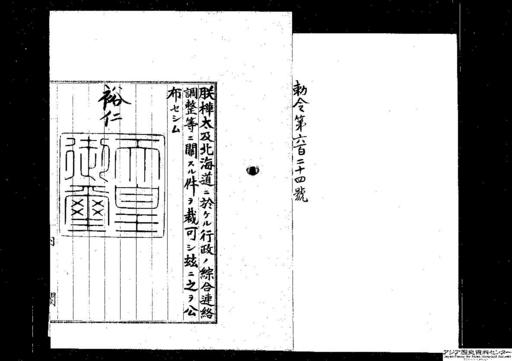 勅令第六百二十四號
朕樺太及北海道ニ於ケル行政ノ綜合連絡
調整等ニ關スル件ヲ裁可シ玆ニ之ヲ公
布セシム
裕仁
天皇
御璽
内閣
アジア歴史資料センター